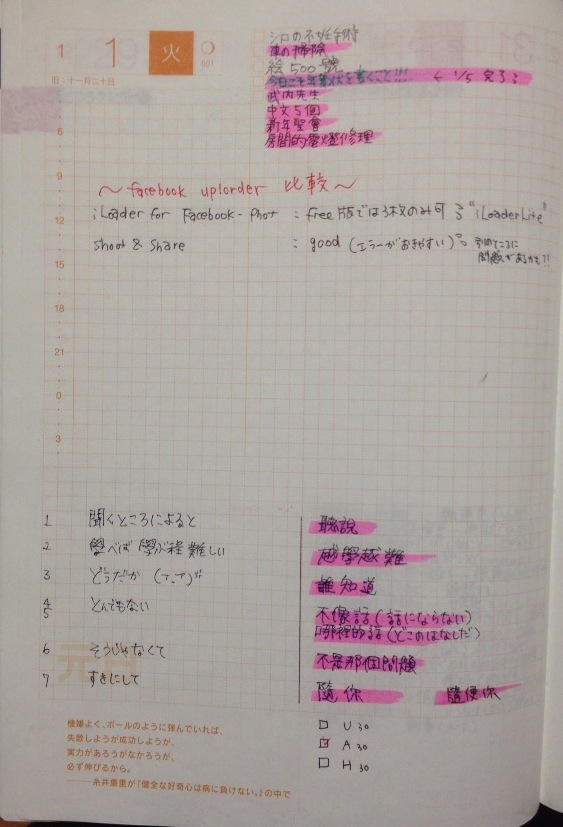 1 1 火
001
旧:十一月二十日
シロの不妊手術
車の掃除
絵500號
今日こそ年賀状を書くこと!!! ← 1/5 完了
武内先生
中文5個
新年聖會
房間的電燈修理
6
9
12
15
18
21
0
3
〜facebook uplorder 比較〜
iLoader for Facebook-Phot : free版では3枚のみ可 "iLoaderLite"
shoot & Share : good (エラーがおきやすい)
問題があるかも?!
1 聞くところによると 聽說
2 學べば學ぶ程難しい 越學越難
3 どうだか 誰知道
4 とんでもない 不像話(話にならない)
5 哪裡的話(どこのはなしだ)
6 そうじゃなくて 不是那個問題
7 すきにして 隨你 隨便你
元日
機嫌よく、ボールのように弾んでいれば、
失敗しようが成功しようが、
実力があろうがなかろうが、
必ず伸びるから。
——糸井重里が『健全な好奇心は病に負けない。』の中で
U 30
A 30
H 30